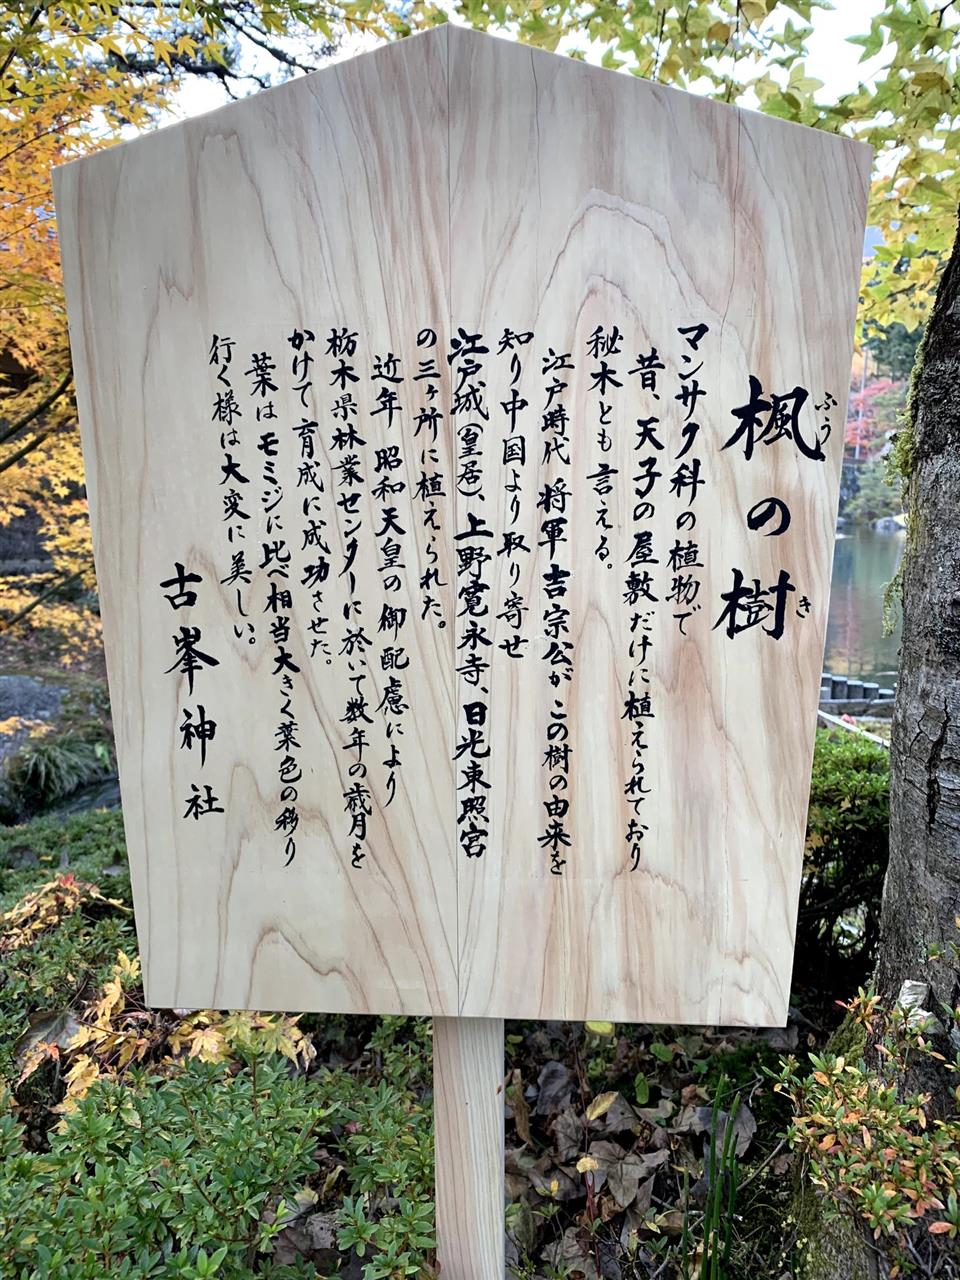 楓の樹
ふう
き
マンサク科の植物で
昔、天子の屋敷だけに植えられており
秘木とも言える。
江戸時代 将軍吉宗公が この樹の由来を
知り中国より取り寄せ
江戸城(皇居)、上野寛永寺、日光東照宮
の三ヶ所に植えられた。
近年 昭和天皇の御配慮により
栃木県林業センターに於いて数年の歳月を
かけて育成に成功させた。
葉はモミジに比べ相当大きく葉色の移り
行く様は大変に美しい。
古峯神社